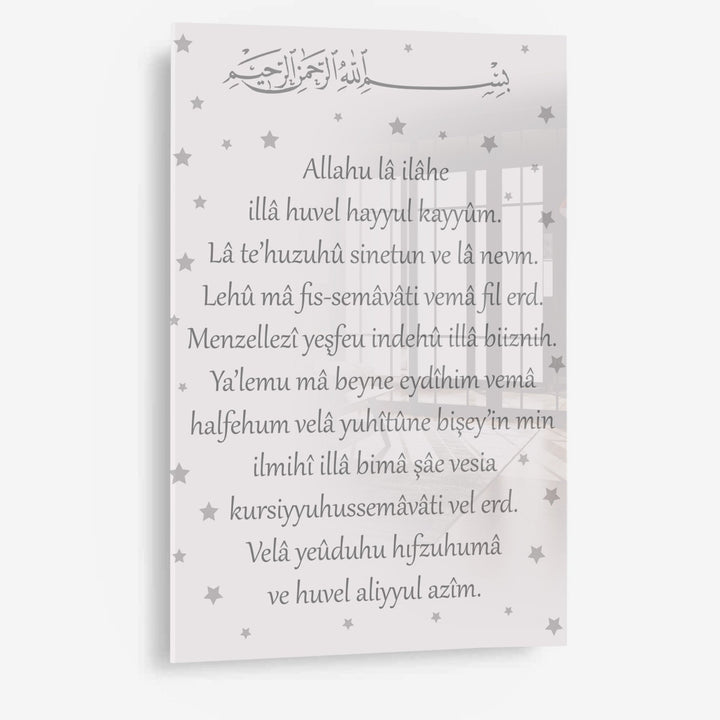 بِسْمِ اللهِ الرَّحْمٰنِ الرَّحِيمِ
Allahu lâ ilâhe
illâ huvel hayyul kayyûm.
Lâ te’huzuhû sinetun ve lâ nevm.
Lehû mâ fis-semâvâti vemâ fil erd.
Menzellezî yeşfeu indehû illâ biiznih.
Ya’lemu mâ beyne eydîhim vemâ
halfehum velâ yuhîtûne bişey’in min
ilmihî illâ bimâ şâe vesia
kursiyyuhussemâvâti vel erd.
Velâ yeûduhu hıfzuhumâ
ve huvel aliyyul azîm.